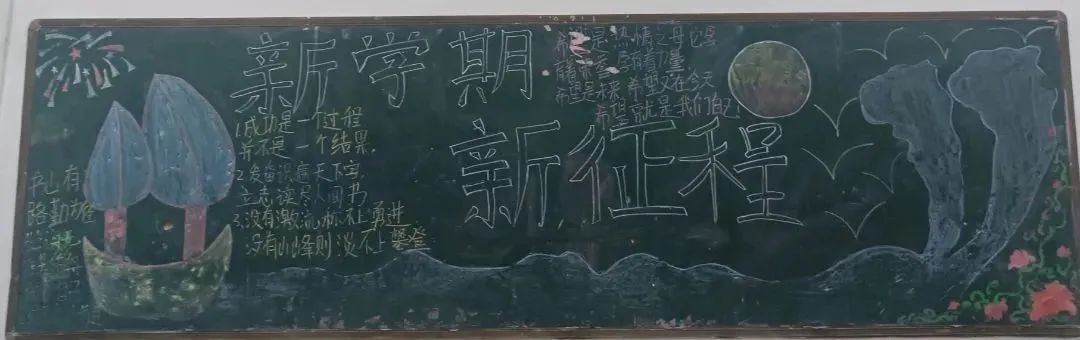 新学期
新征程
希望是热情之母它孕
希望是未来 希望又在今天
希望就是我们自己
1.成功是一个过程
并不是一个结果。
2.发奋识遍天下字
立志读尽人间书
3.没有激流 不上勇进
没有山峰则谈不上攀登
山有
路勤